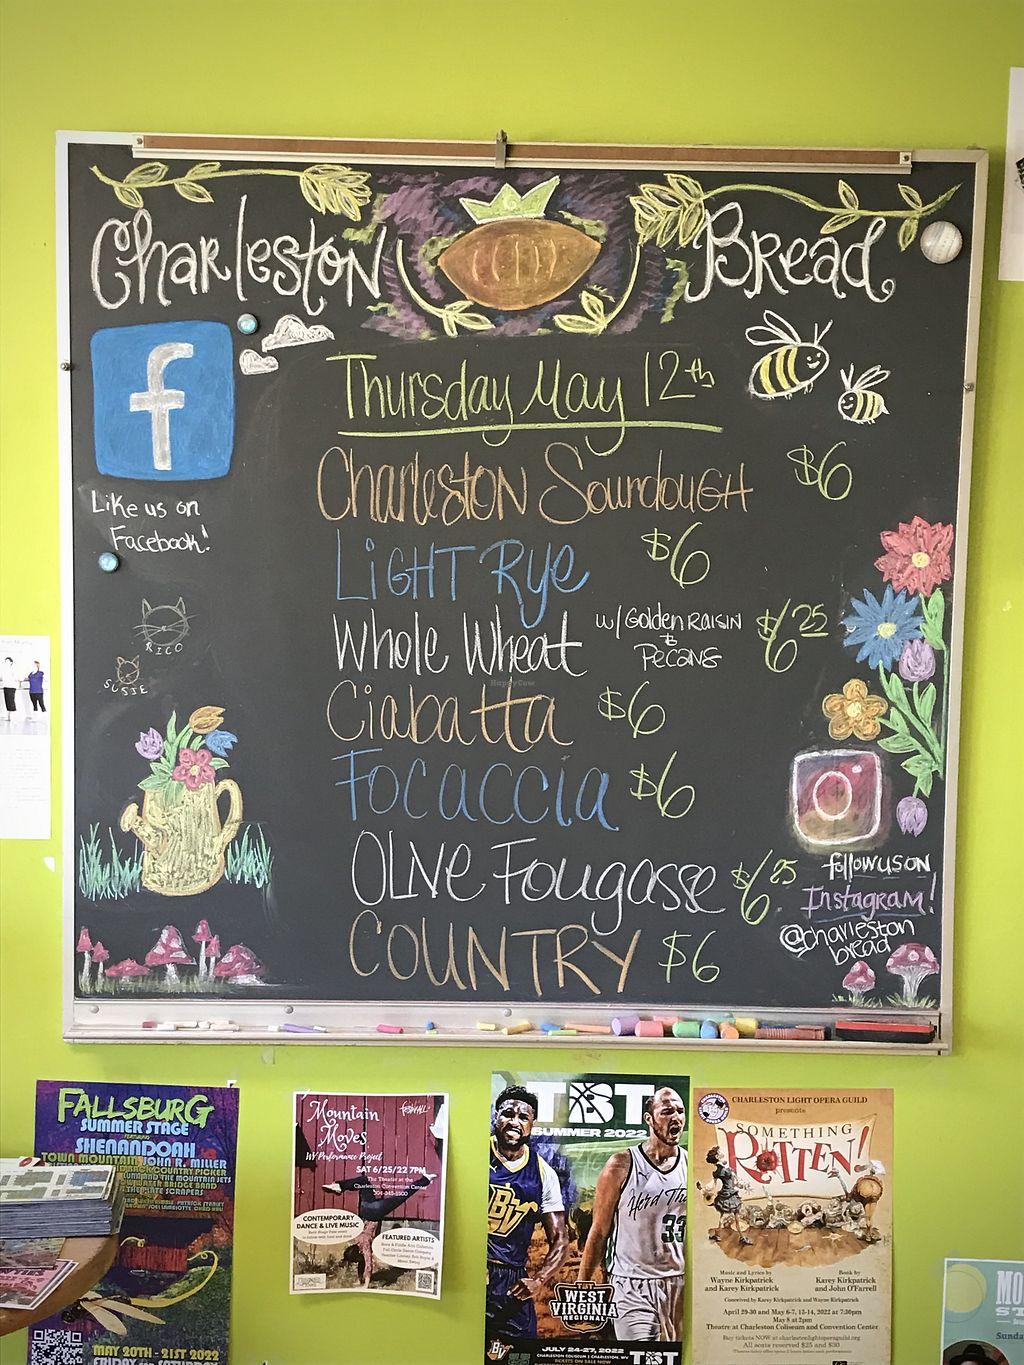 Charleston Bread
Thursday May 12th
Charleston Sourdough $6
Light Rye $6
Whole Wheat w/ Golden Raisin & Pecans $6.25
Ciabatta $6
Focaccia $6
Olive Fougasse $6.25
Country $6
f
Like us on
Facebook!
RICO
SUSIE
follow us on
Instagram!
@charleston
bread
HappyCow
FALLSBURG
SUMMER STAGE
FEATURING
SHENANDOAH
TOWN MOUNTAIN JOHN R. MILLER
MAY 20TH - 21ST 2022
Mountain
Moves
WV Performance Project
SAT 6/25/22 7PM
The Theater at the
Charleston Convention Center
CONTEMPORARY
DANCE & LIVE MUSIC
FEATURED ARTISTS
TBT
SUMMER 2022
BV
Herd Th
33
TBT
WEST
VIRGINIA
REGIONAL
JULY 24-27, 2022
CHARLESTON COLISEUM | CHARLESTON, WV
TBT
CHARLESTON LIGHT OPERA GUILD
presents
SOMETHING
ROTTEN!
Music and Lyrics by
Wayne Kirkpatrick
and Karey Kirkpatrick
Book by
Karey Kirkpatrick
and John O'Farrell
Conceived by Karey Kirkpatrick and Wayne Kirkpatrick
April 29-30 and May 6-7, 13-14, 2022 at 7:30pm
May 8 at 2pm
Theatre at Charleston Coliseum and Convention Center
Buy tickets NOW at charlestonlightoperaguild.org
All seats reserved $25 and $30
MO
ST
Sunda